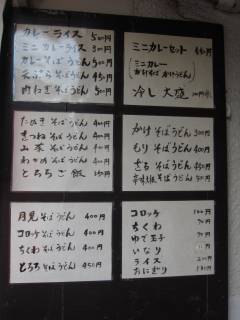 カレーライス 500円
ミニカレーライス 300円
カレーそばうどん 500円
天ぷらそばうどん 450円
肉ねぎそばうどん 500円
ミニカレーセット
ミニカレー
かけそばかけうどん
冷し大盛 100円
たぬきそばうどん 400円
きつねそばうどん 400円
山菜そばうどん 400円
わかめそばうどん 400円
とろろご飯
かけそばうどん
もりそばうどん 400円
ざるそばうどん
そばうどん
月見そばうどん 400円
コロッケそばうどん 400円
ちくわそばうどん 400円
とろろそばうどん 450円
コロッケ 100円
ちくわ
ゆで玉子
いなり
ライス 200円
おにぎり